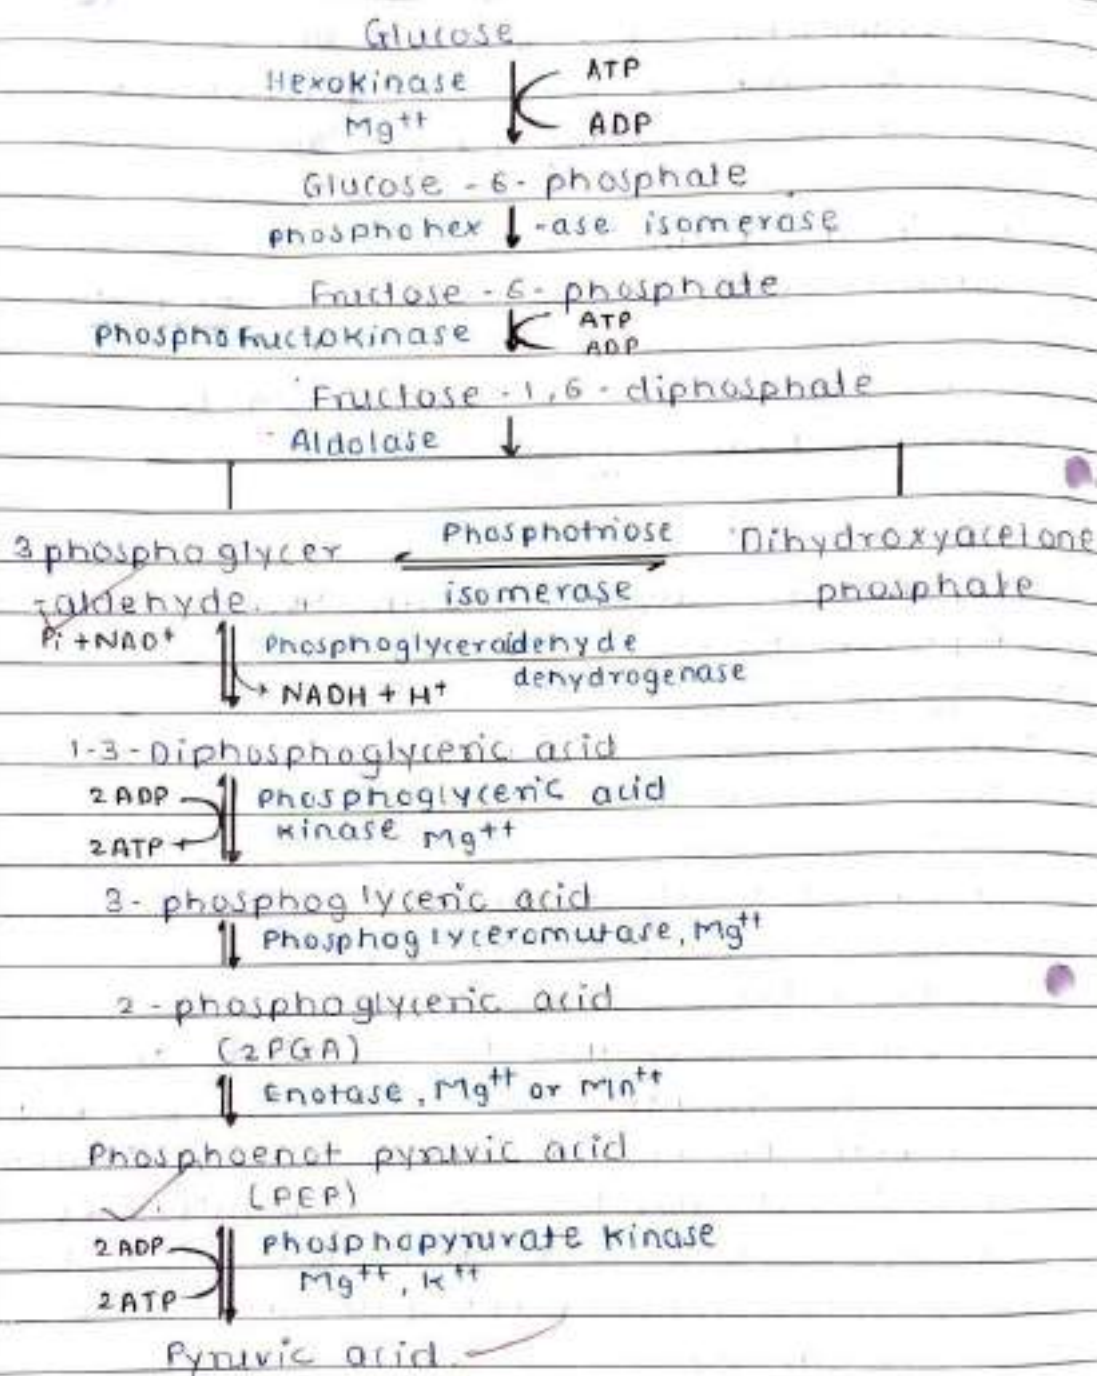 Glucose
Hexokinase ATP
Mg++ ADP
Glucose - 6 - phosphate
phosphohex -ase isomerase
Fructose - 6 - phosphate
Phosphofructokinase ATP
ADP
Fructose - 1,6 - diphosphate
Aldolase
3 phosphoglycer Phosphotriose Dihydroxyacetone
-aldehyde. isomerase phosphate
Pi + NAD+ Phosphoglyceraldehyde
dehydrogenase
NADH + H+
1-3-Diphosphoglyceric acid
2 ADP Phosphoglyceric acid
2 ATP kinase Mg++
3- phosphoglyceric acid
Phosphoglyceromutase, Mg++
2 - phosphoglyceric acid
(2PGA)
Enolase, Mg++ or Mn++
Phosphoenol pyruvic acid
(PEP)
2 ADP Phosphopyruvate kinase
2 ATP Mg++, K++
Pyruvic acid.